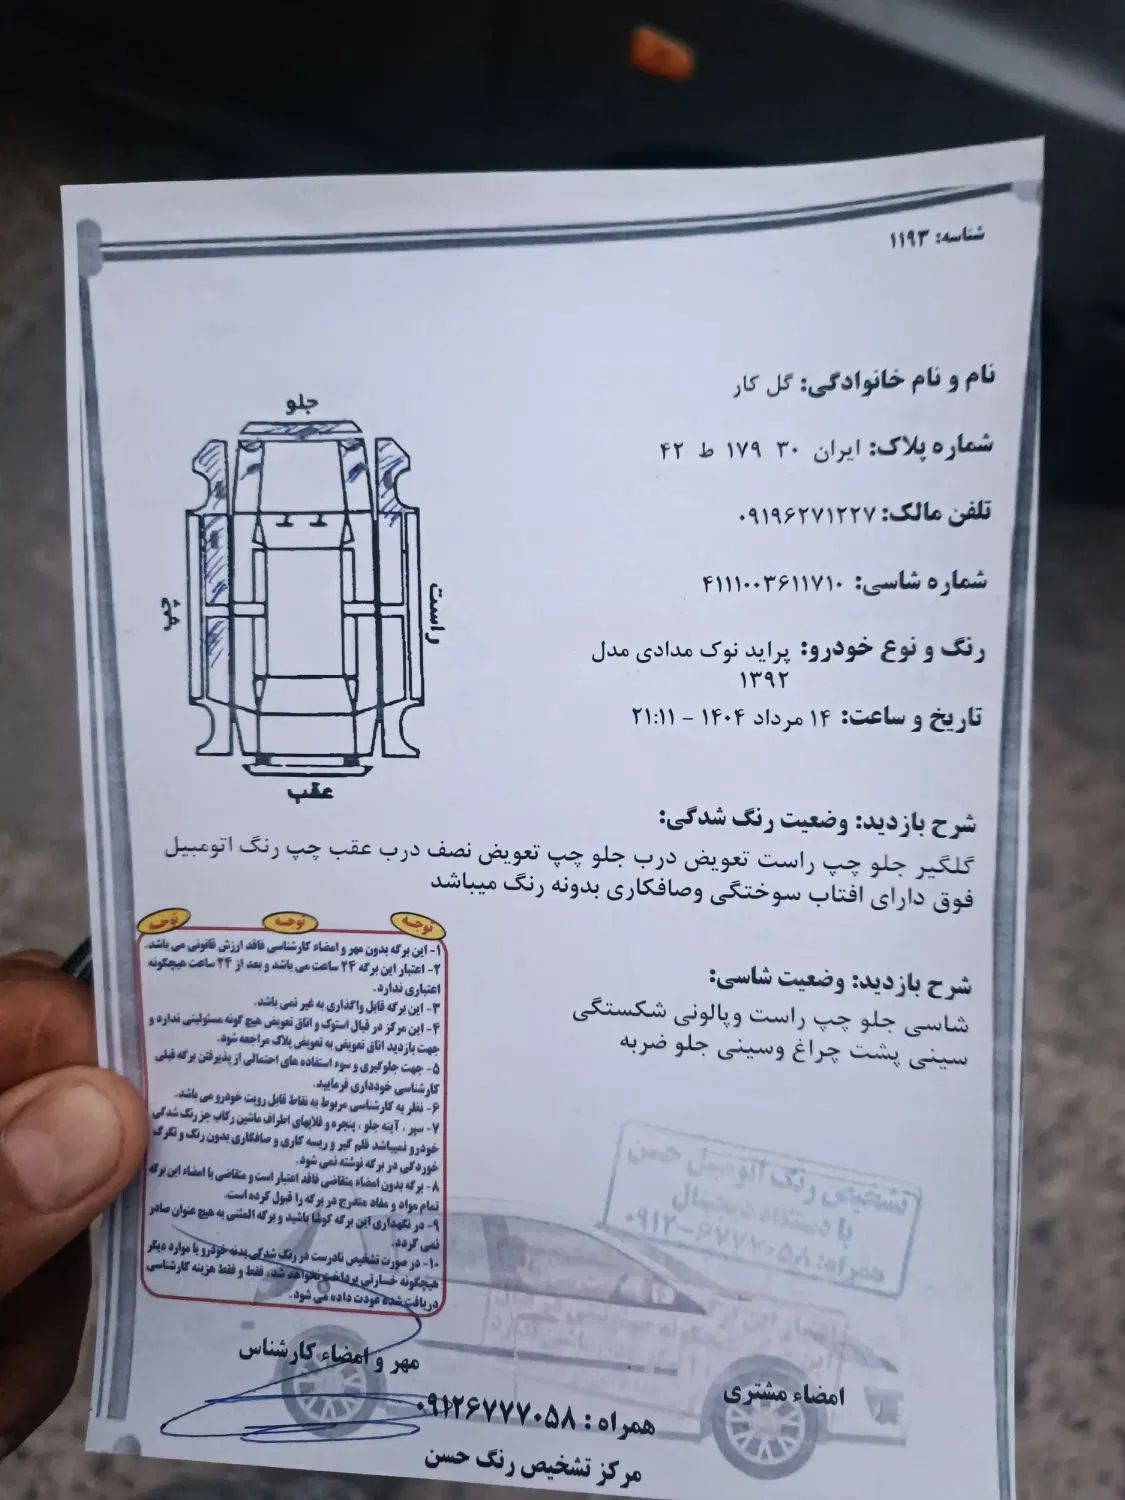 شناسه: ۱۱۹۳
نام و نام خانوادگی: گل کار
شماره پلاک: ایران ۳۰ ۱۷۹ ط ۴۲
تلفن مالک: ۰۹۱۹۶۲۷۱۲۲۷
شماره شاسی: ۴۱۱۱۰۰۳۶۱۱۷۱۰
رنگ و نوع خودرو: پراید نوک مدادی مدل
۱۳۹۲
تاریخ و ساعت: ۱۴ مرداد ۱۴۰۴ - ۲۱:۱۱
جلو
راست
چپ
عقب
شرح بازدید: وضعیت رنگ شدگی:
گلگیر جلو چپ راست تعویض درب جلو چپ تعویض نصف درب عقب چپ رنگ اتومبیل
فوق دارای افتاب سوختگی وصافکاری بدونه رنگ میباشد
شرح بازدید: وضعیت شاسی:
شاسی جلو چپ راست وپالونی شکستگی
سینی پشت چراغ وسینی جلو ضربه
توجه توجه توجه
۱- این برگه بدون مهر و امضاء کارشناسی فاقد ارزش قانونی می باشد.
۲- اعتبار این برگه ۲۴ ساعت می باشد و بعد از ۲۴ ساعت هیچگونه
اعتباری ندارد.
۳- این برگه قابل واگذاری به غیر نمی باشد.
۴- این مرکز در قبال استوک و اتاق تعویض هیچ گونه مسئولیتی نداره و
جهت بازدید اتاق تعویض به تعویض پلاک مراجعه شود.
۵- جهت جلوگیری و سوء استفاده های احتمالی از پذیرفتن برگه قبلی
کارشناسی خودداری فرمایید.
۶- نظر به کارشناسی مربوط به نقاط قابل رویت خودرو می باشد.
۷- سپر ، آینه جلو ، پنجره و قلابهای اطراف ماشین رکاب جز رنگ شدگی
خودرو نمیباشد قلم گیر و ریسه کاری و صافکاری بدون رنگ و تگرگ
خوردگی در برگه نوشته نمی شود.
۸- برگه بدون امضاء متقاضی فاقد اعتبار است و متقاضی با امضاء این برگه
تمام مواد و مفاد مندرج در برگه را قبول کرده است.
۹- در نگهداری این برگه کوشا باشید و برگه المثنی به هیچ عنوان صادر
نمی گردد.
۱۰- در صورت تشخیص نادرست در رنگ شدگی بدنه خودرو یا موارد دیگر
هیچگونه خسارتی پرداخت نخواهد شد، فقط و فقط هزینه کارشناسی
دریافت شده عودت داده می شود.
تشخیص رنگ اتومبیل حسن
با دستگاه دیجیتال
همراه: ۰۹۱۲-۶۷۷۷۰۵۸
امضاء مشتری
مهر و امضاء کارشناس
همراه : ۰۹۱۲۶۷۷۷۰۵۸
مرکز تشخیص رنگ حسن